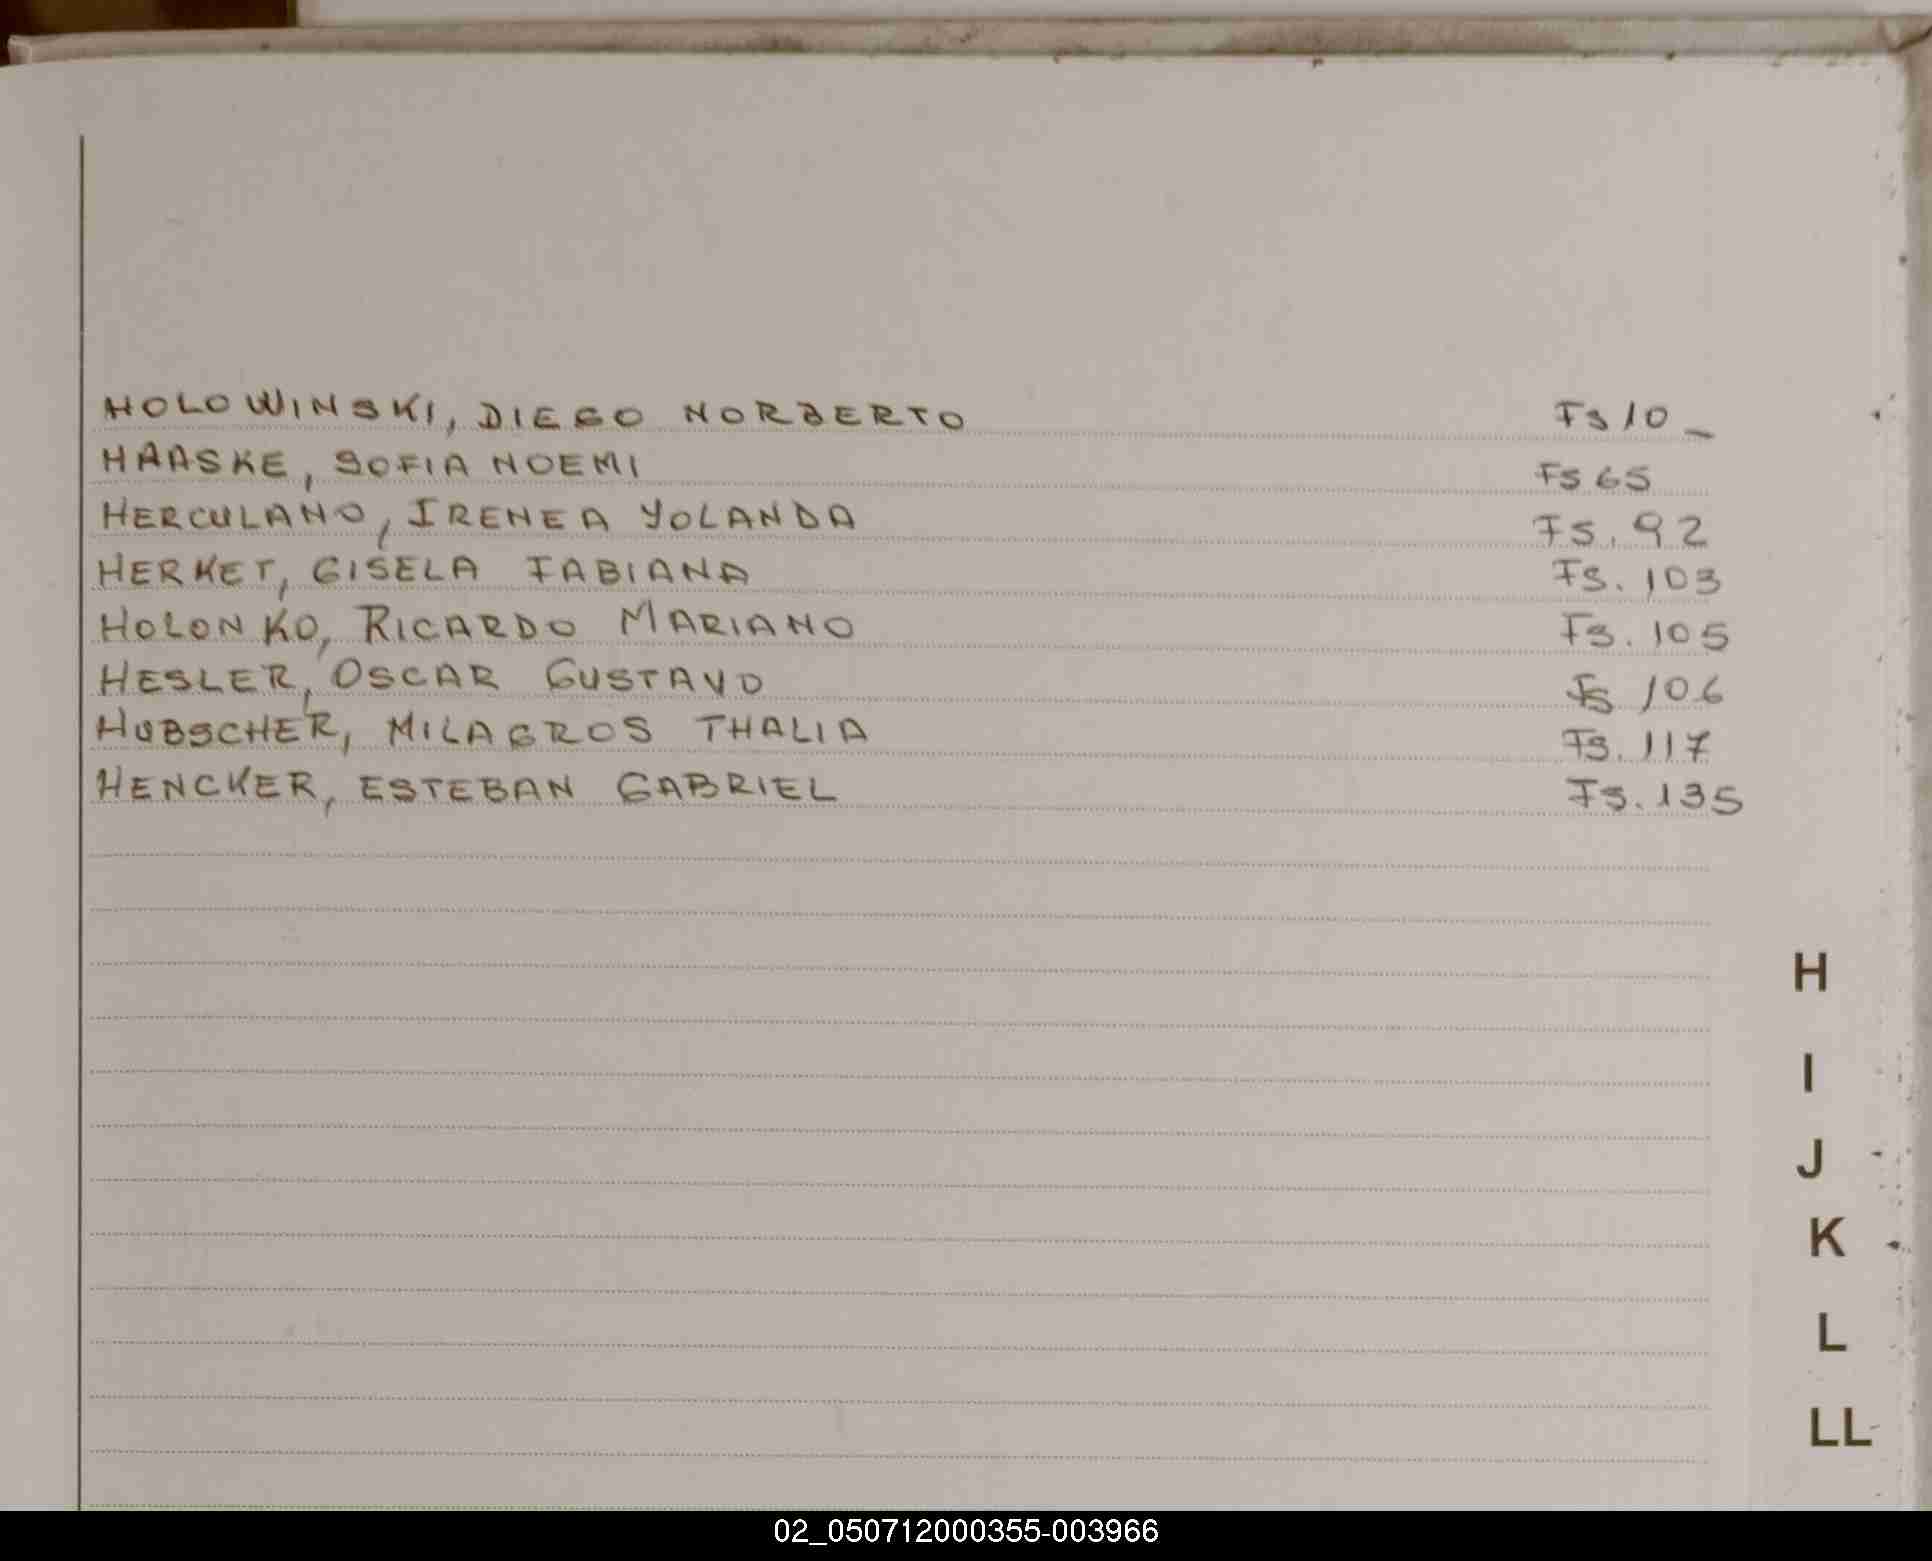 HOLOWINSKI, DIEGO NORBERTO Fs 10_
HAASKE, SOFIA NOEMI Fs 65
HERCULANO, IRENEA YOLANDA Fs. 92
HERKET, GISELA FABIANA Fs. 103
HOLONKO, RICARDO MARIANO Fs. 105
HESLER, OSCAR GUSTAVO Fs 106
HUBSCHER, MILAGROS THALIA Fs. 117
HENCKER, ESTEBAN GABRIEL Fs. 135
H
I
J
K
L
LL
02_050712000355-003966